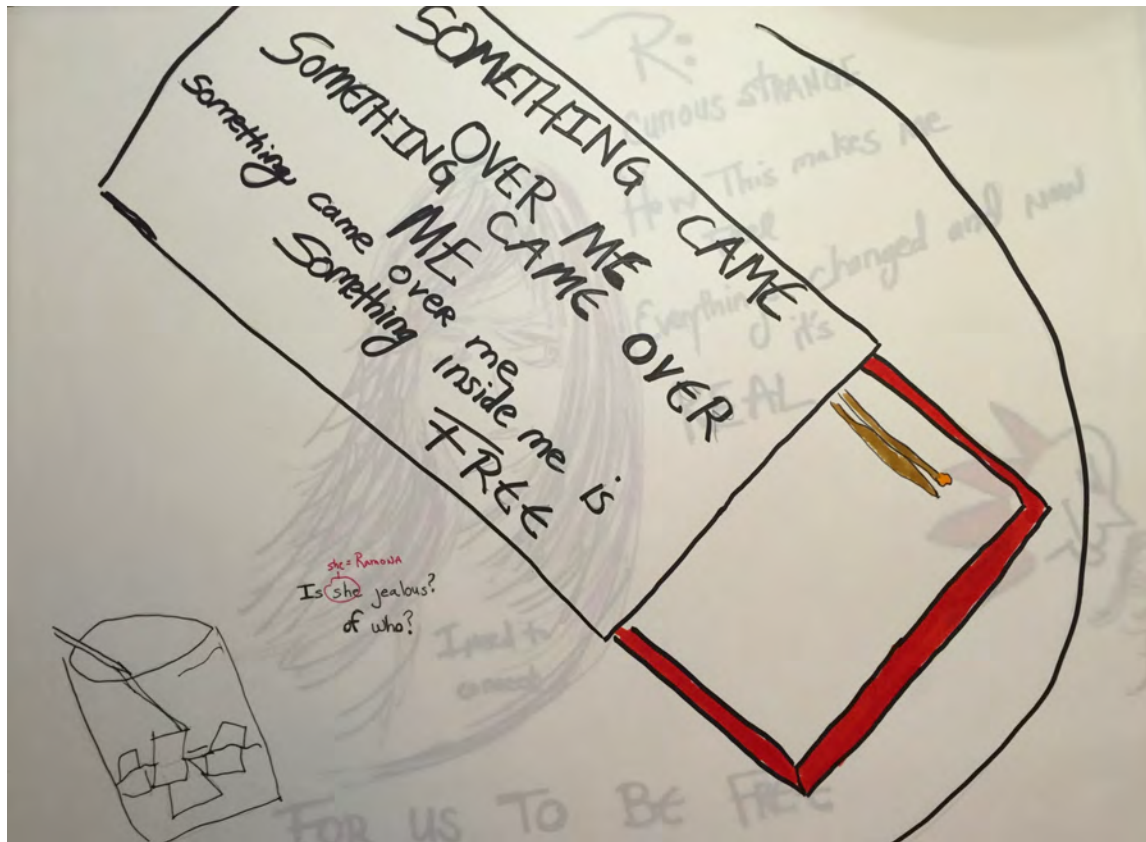 SOMETHING CAME
OVER ME
SOMETHING CAME OVER
ME
Something came over me
Something inside me is
FREE
she = RAMONA
Is she jealous?
of who?
R:
Curious STRANGE
How This makes me
Feel
Everything changed and now
it's
REAL
I need to
connect
FOR US TO BE FREE